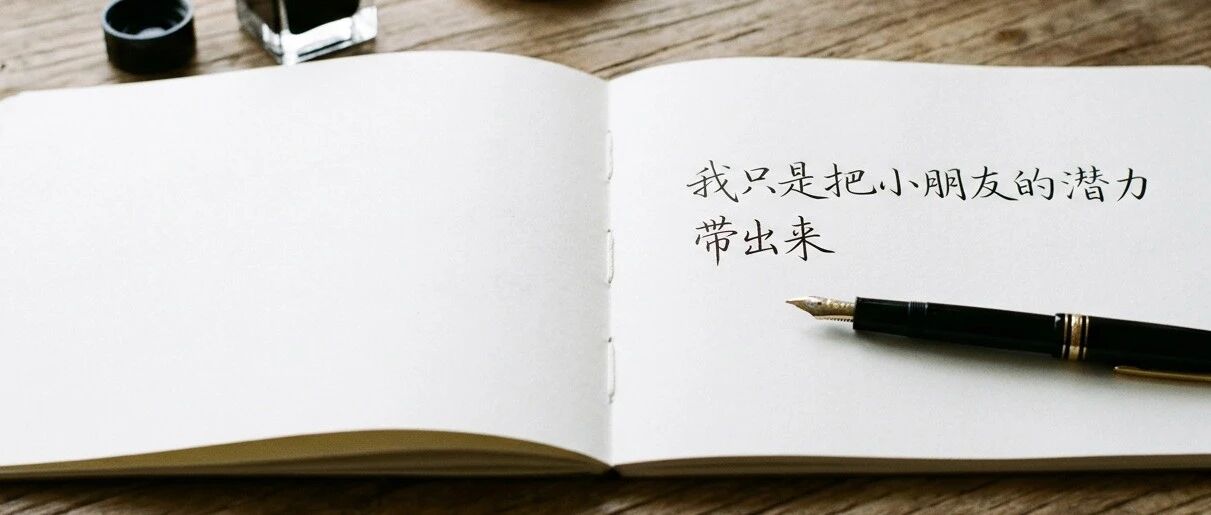 我只是把小朋友的潜力
带出来